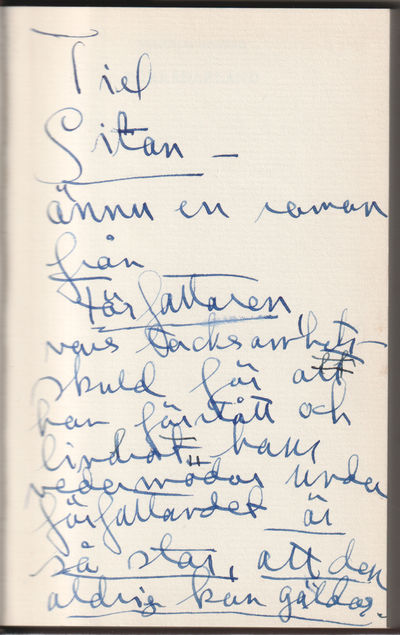 Till
Gitan –
ännu en roman
från
Författaren,
vars tacksamhets-
skuld för att
hon förstått och
lindrat hans
vedermödor under
författandet är
så stor, att den
aldrig kan gäldas.